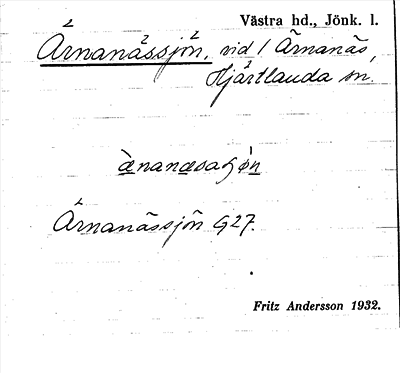 Västra hd., Jönk. l.
Årnanässjön, vid / Ärnanäs,
Hjärtlanda sn.
Årnanässjön G27.
Fritz Andersson 1932.